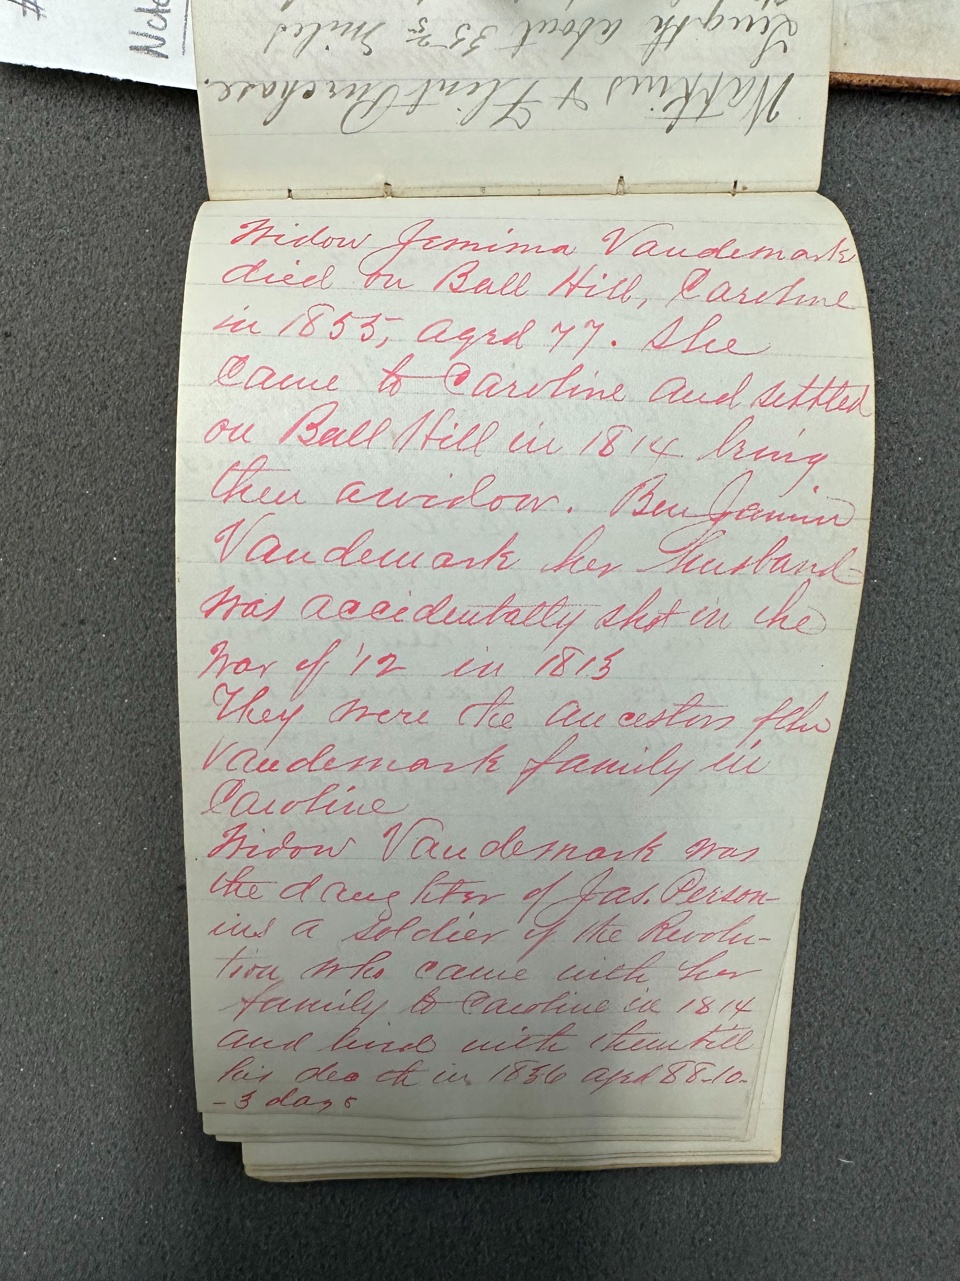 #
Note
Watkins & Flint Purchase.
Length about 35 3/5 miles
Widow Jemima Vandemark
died on Ball Hill, Caroline
in 1855, aged 77. She
came to Caroline and settled
on Ball Hill in 1814 being
then a widow. Benjamin
Vandemark her husband
was accidentally shot in the
War of '12 in 1813
They were the ancestors of the
Vandemark family in
Caroline
Widow Vandemark was
the daughter of Jas. Person-
ius a soldier of the Revolu-
tion who came with her
family to Caroline in 1814
and lived with them till
his death in 1836 aged 88-10-
-3 days